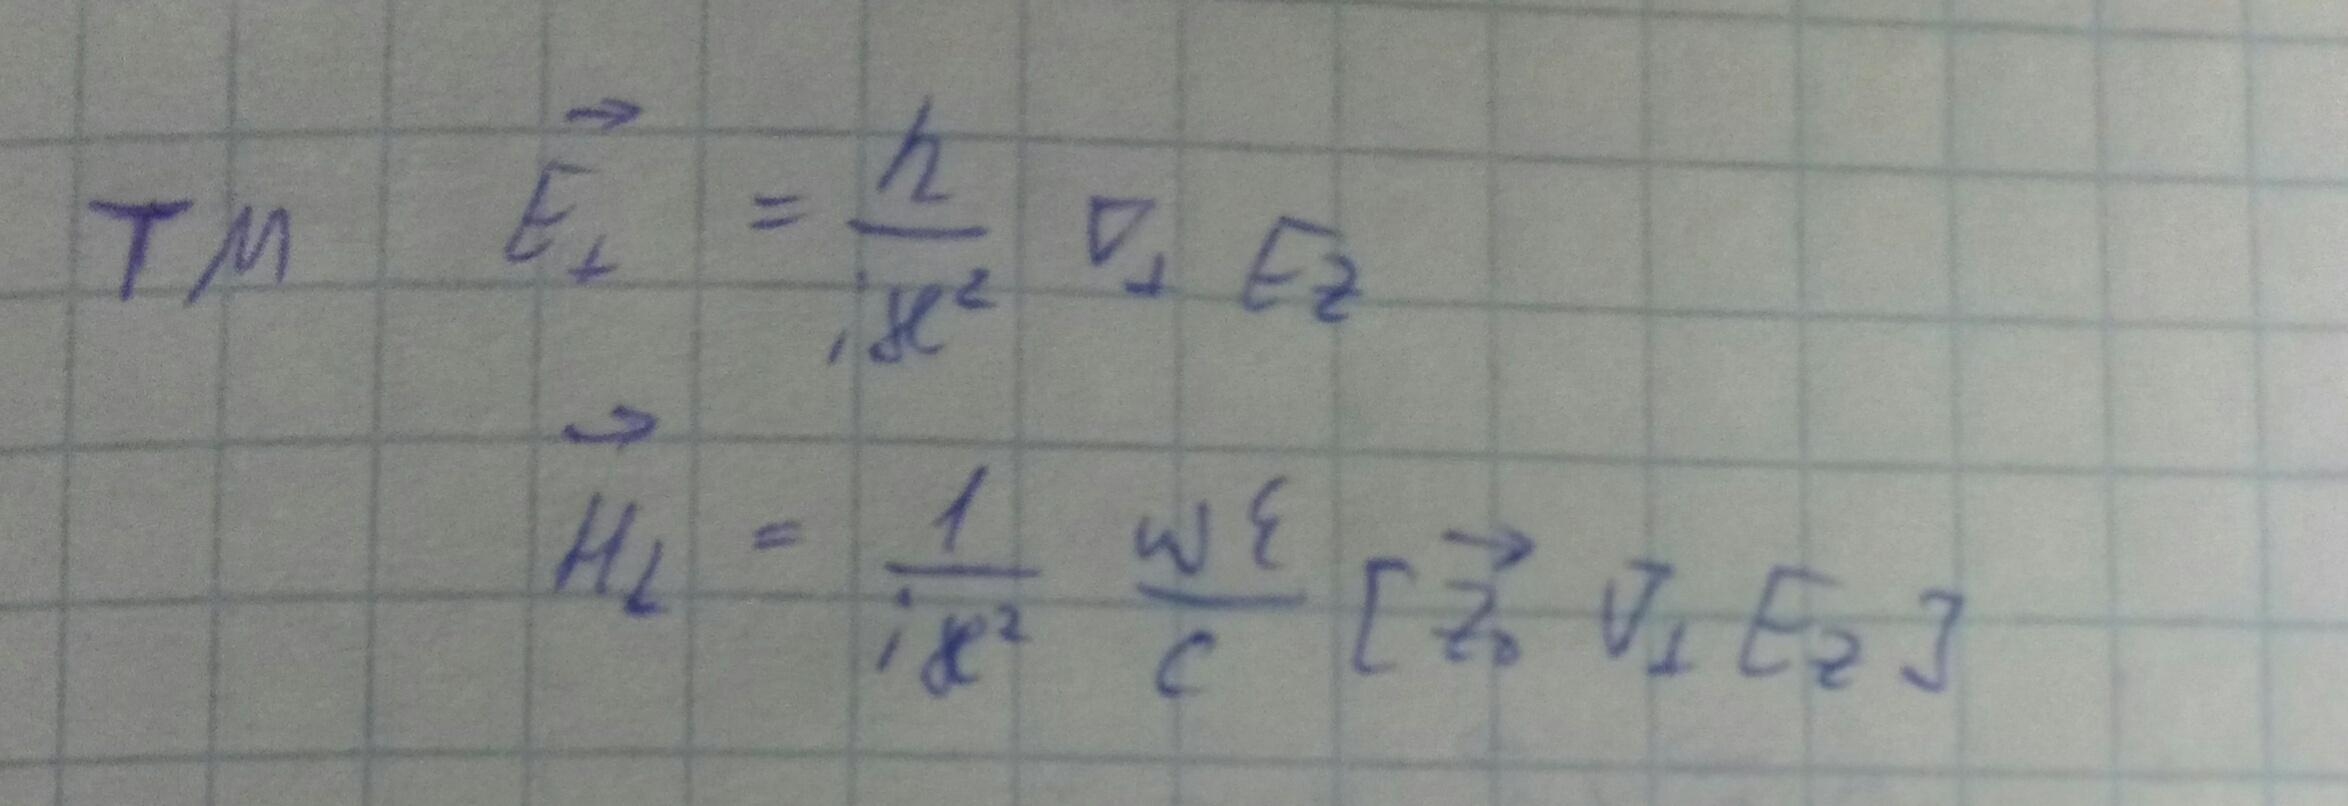 TM $\vec{E}_{\perp} = \frac{h}{i\varkappa^2} \nabla_{\perp} E_z$
$\vec{H}_{\perp} = \frac{1}{i\varkappa^2} \frac{\omega\varepsilon}{c} [\vec{z}_0 \nabla_{\perp} E_z]$